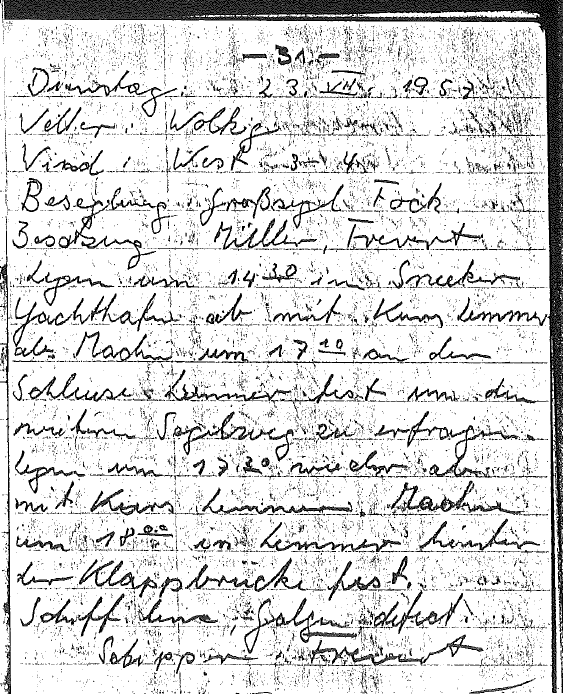 — 31. —
Dienstag. 23. VII. 1957
Wetter: Wolkig
Wind: West 3-4.
Besegelung: Großsegel Fock.
Besatzung: Müller, Frevert
Legen um 14 30 im Sneeker
Yachthafen ab mit Kurs Lemmer
ab. Machen um 17 10 an der
Schleuse Lemmer fest um den
weiteren Segelweg zu erfragen.
Legen um 17 30 wieder ab
mit Kurs Lemmer. Machen
um 18 00 in Lemmer hinter
der Klappbrücke fest.
Schiff, Galgen defect.
Schipper: Frevert